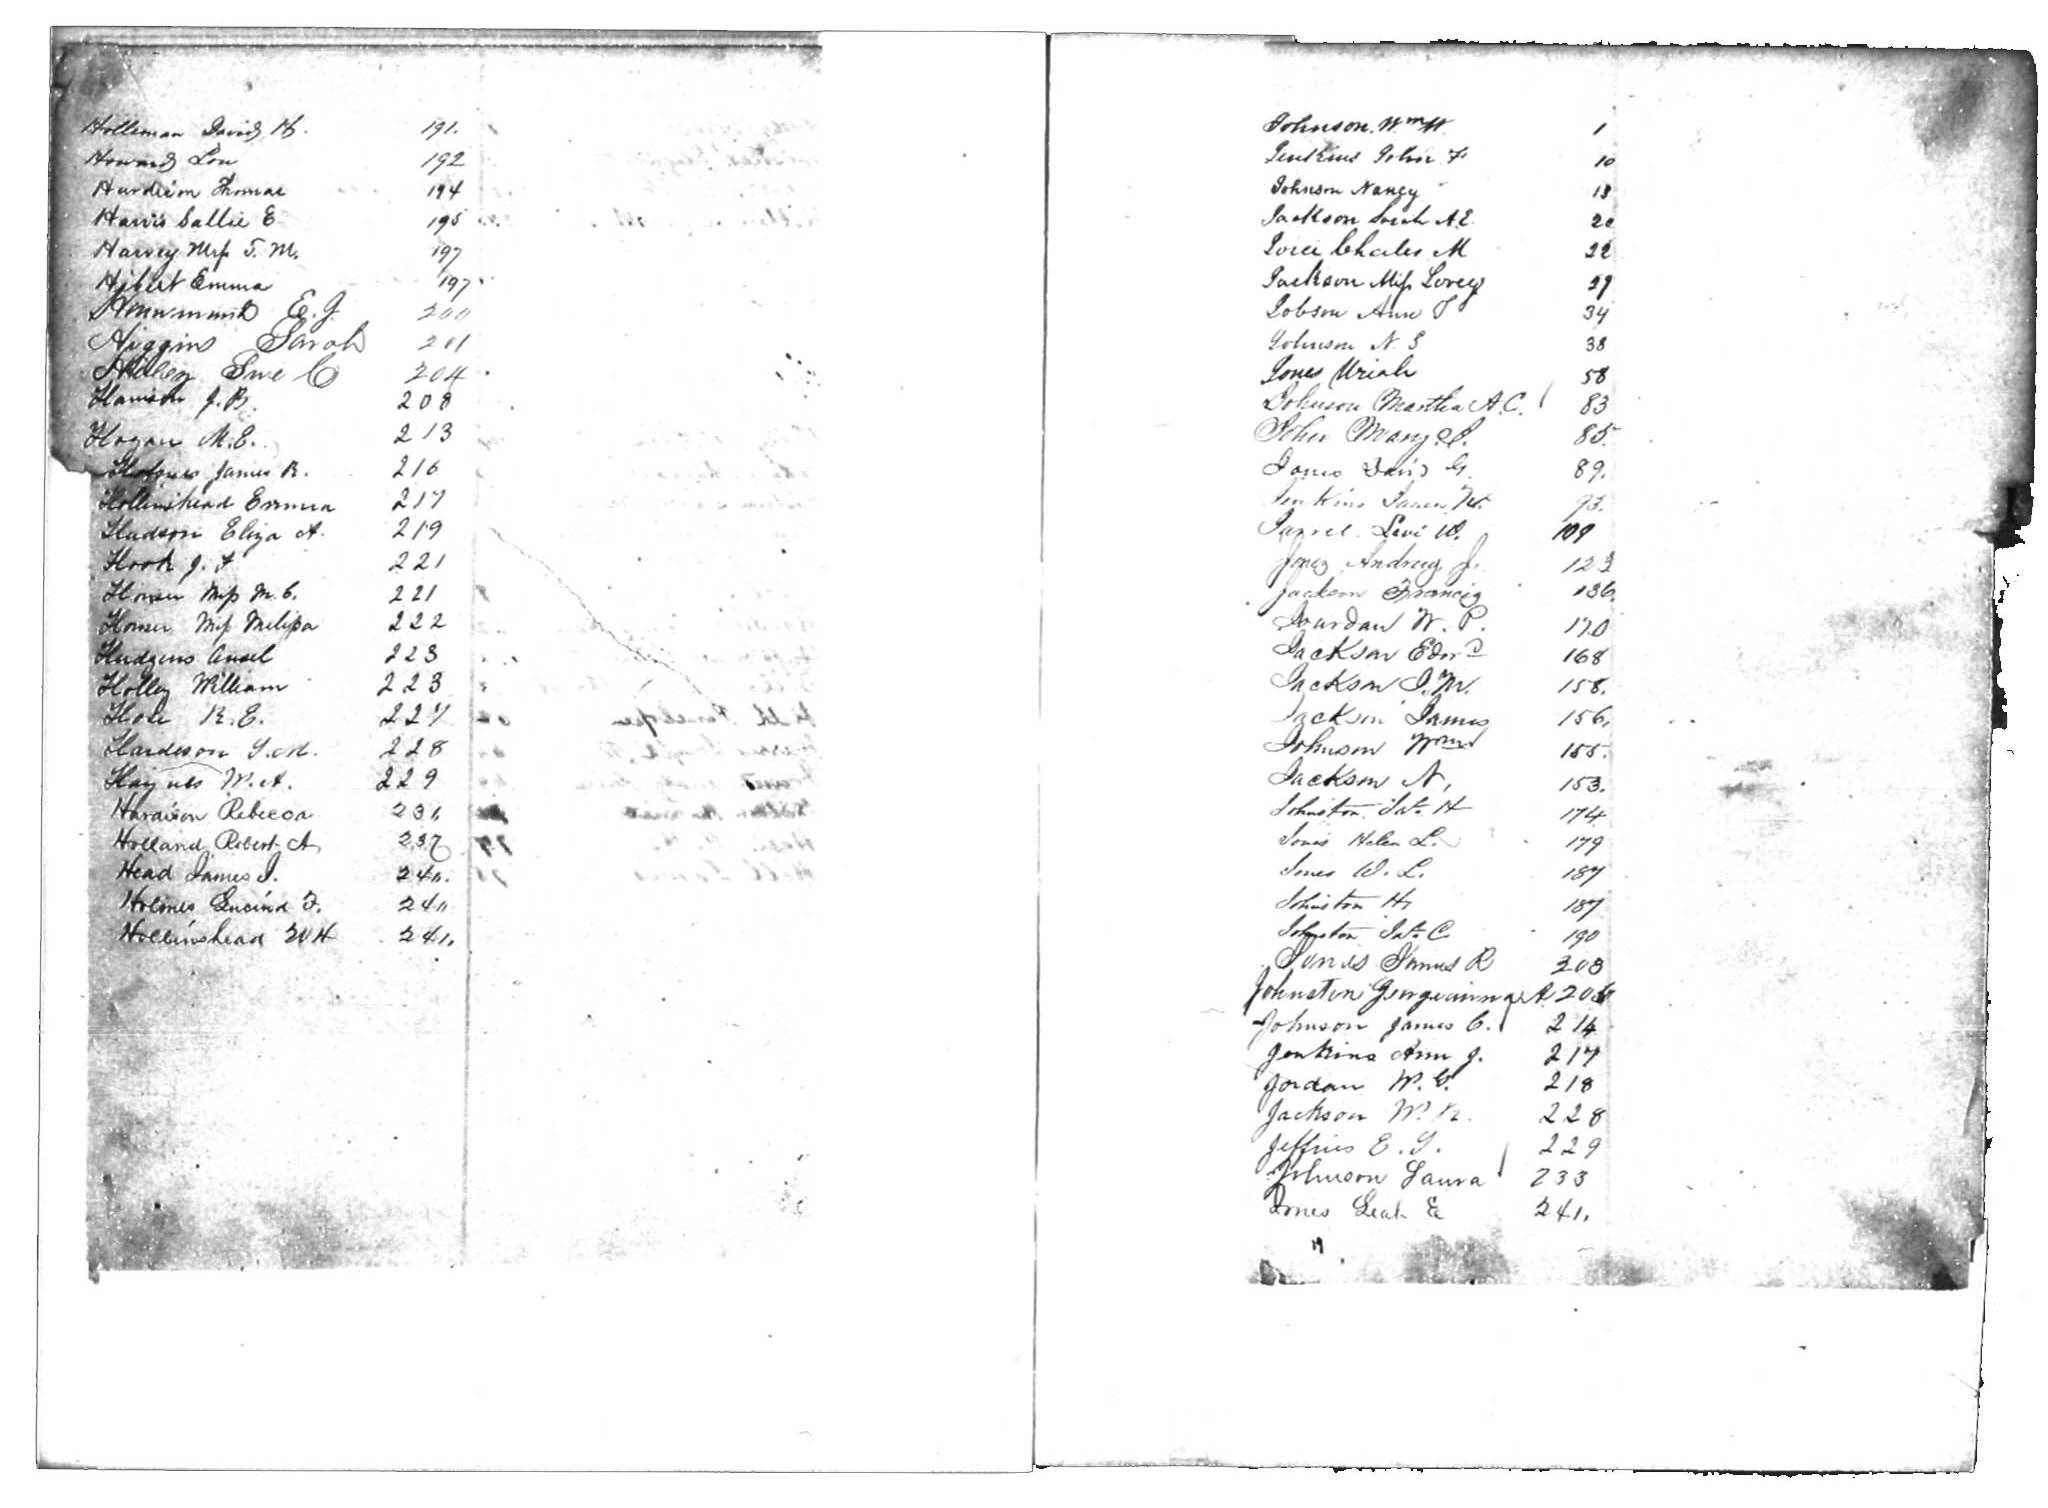 Holleman David H. 191.
Howard Lou 192
Hardison Thomas 194
Harris Sallie E 195
Harvey Miss T. M. 197
Hibert Emma 197
E. J. 200
Higgins Sarah 201
Holley Sue C 204
Harrison J. B. 208
Hogan M. E. 213
Holmes James R. 216
Hollinshead Emma 217
Hudson Eliza A. 219
Hook J. F 221
Houser Miss M. C. 221
Houser Miss Melissa 222
Hudgens Ansel 223
Holley William 223
Hose R. E. 227
Hardeson G. M. 228
Haynes W. A. 229
Hardison Rebecca 231,
Holland Robert A. 237
Head James J. 240.
Holmes Lucind F. 240
Hollinshead W H 241,
Johnson Wm H 1
Jenkins John F 10
Johnson Nancy 13
Jackson Sarah A. E. 20
Joice Charles M 22
Jackson Miss Lovey 29
Jobson Ann T 34
Johnson N. S 38
Jones Uriah 58
Johnson Martha A. C. 83
John Mary J. 85.
Jones David G. 89.
Jenkins James W. 93.
Jarrel Levi W. 109
Jones Andrew J. 123
Jackson Francis 136.
Jourdan W. P. 170
Jackson Edwd 168
Jackson J. M. 158.
Jackson James 156.
Johnson Wm 155.
Jackson N, 153.
Johnston Jas. H 174
Jones Helen L. 179
Jones W. L. 187
Johnston H. 187
Johnston Jas. C. 190
Jones James R 203
Johnston Georgeainna A. 206
Johnson James C. 214
Jenkins Ann J. 217
Jordan W. C. 218
Jackson W. R. 228
Jeffries E. G. 229
Johnson Laura 233
Jones Leah E 241,